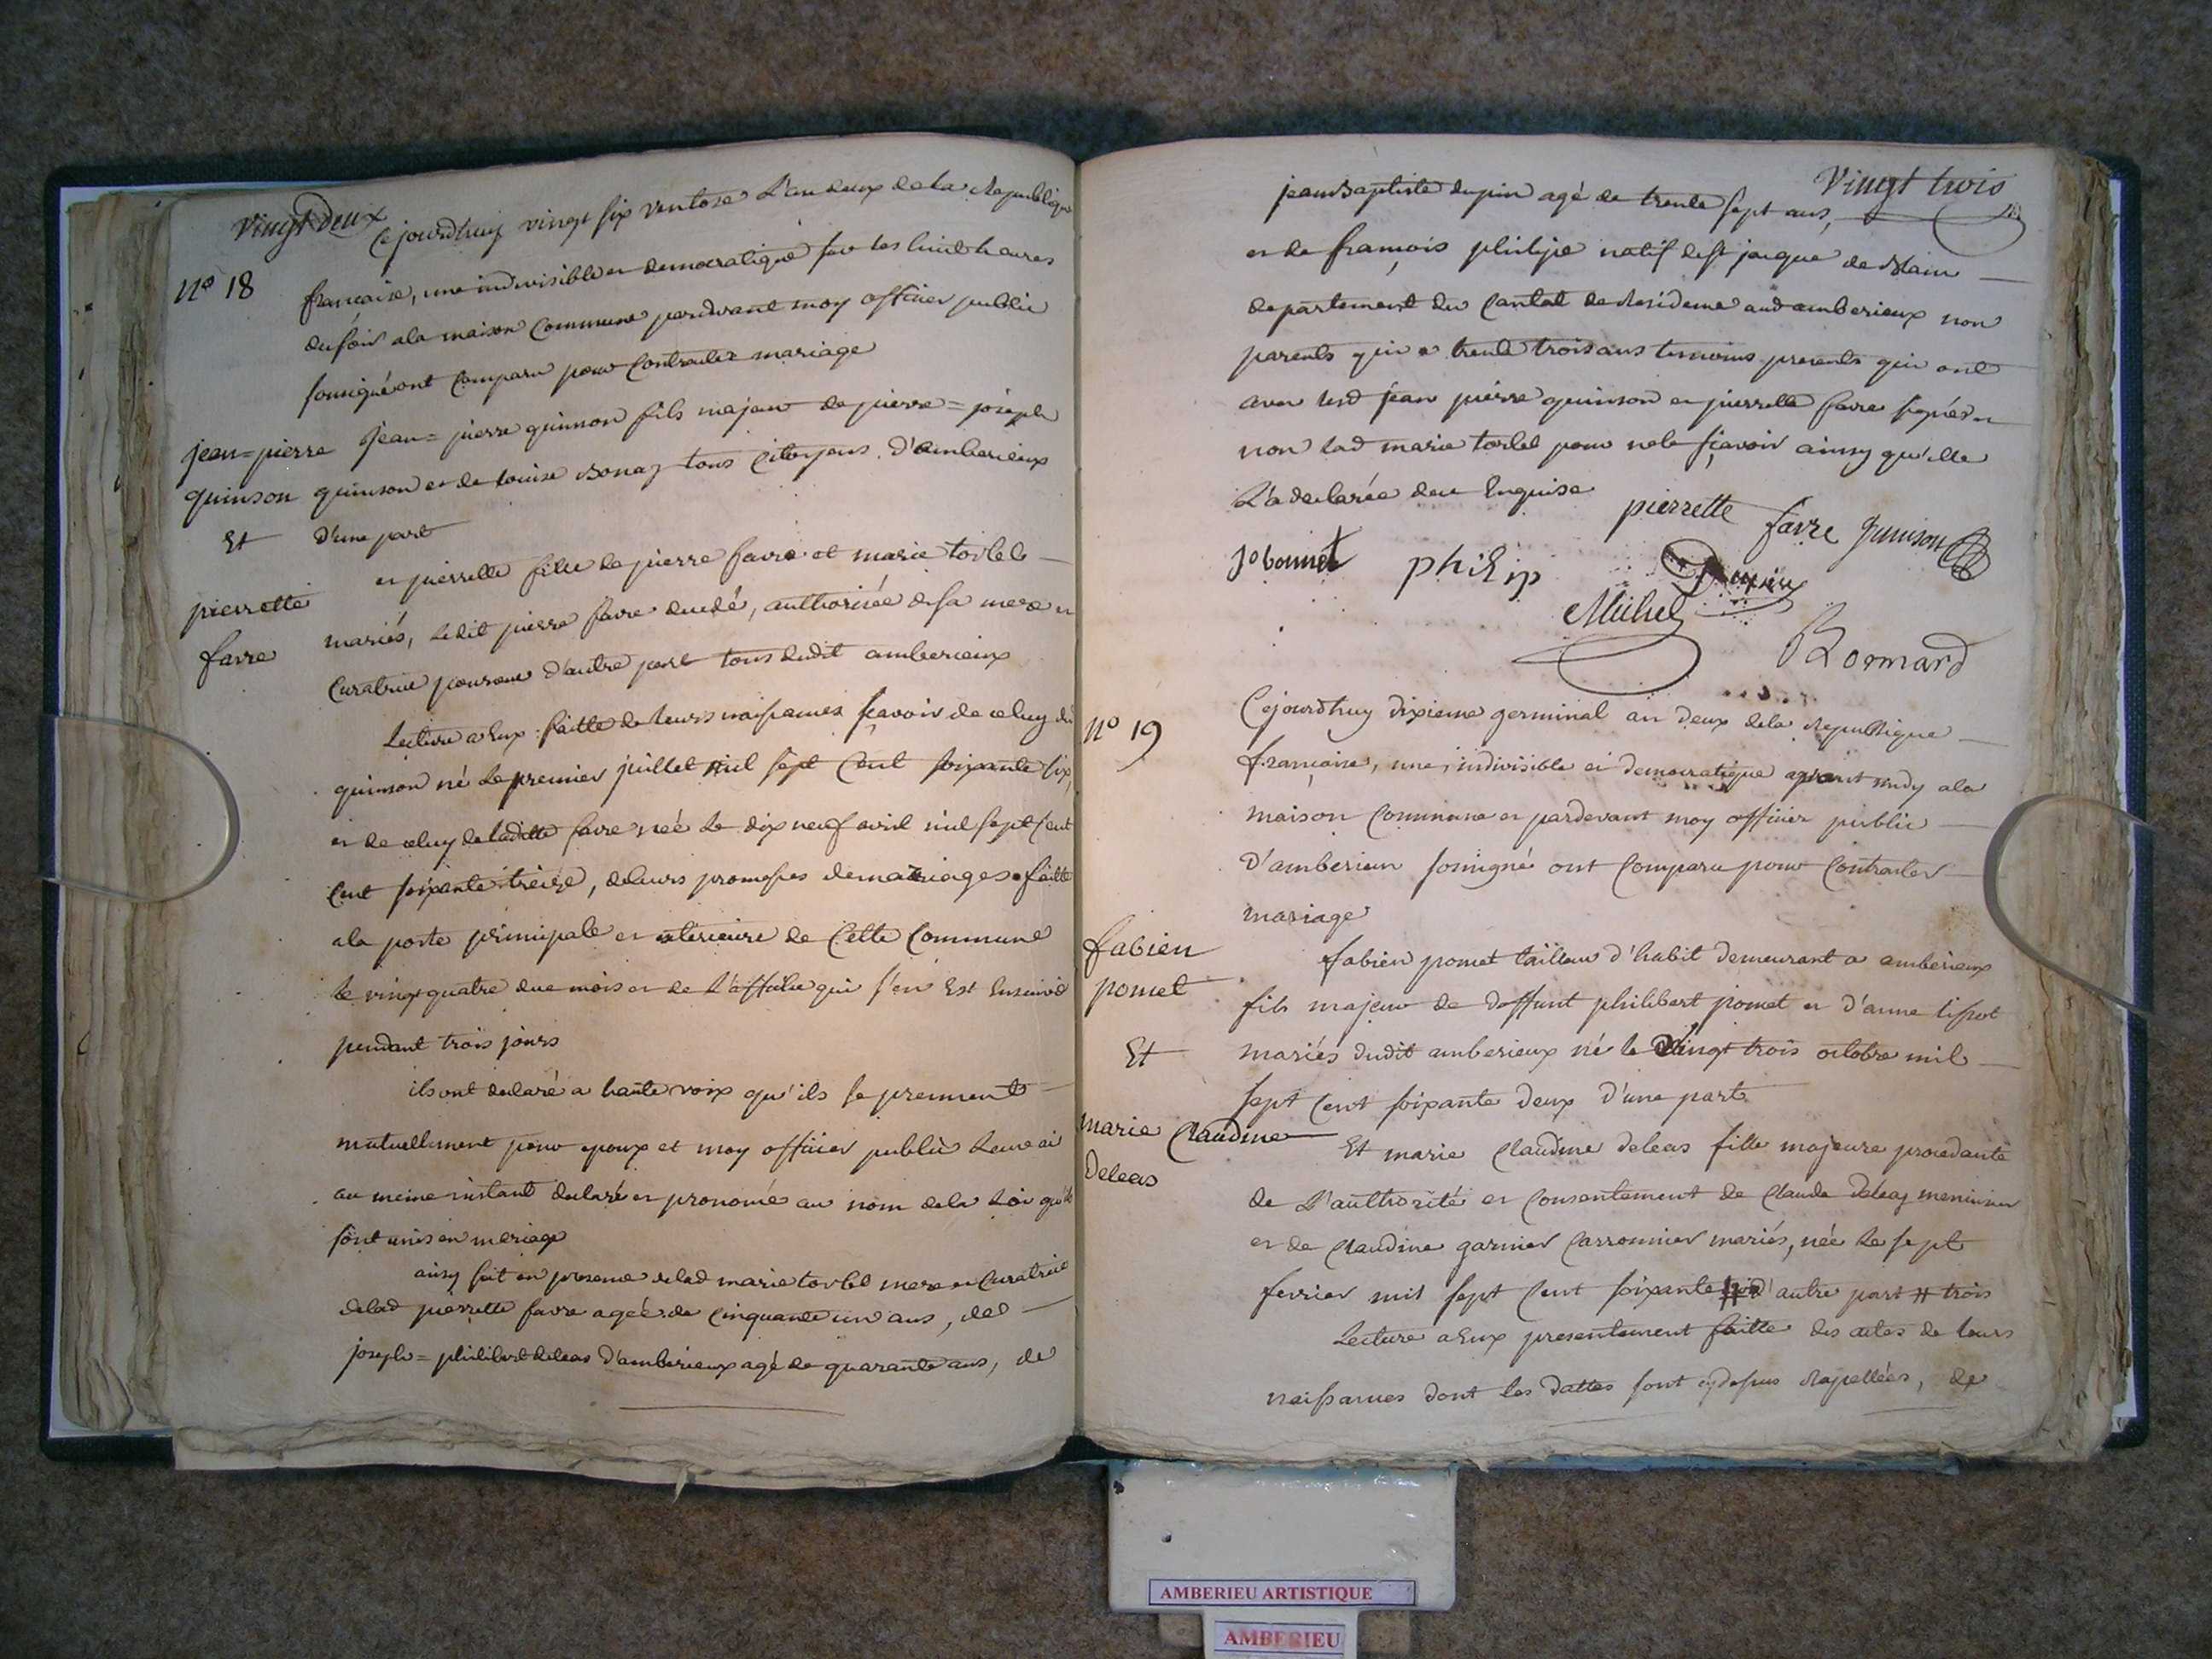 vingt Deux
Cejourdhuy vingt six ventose L'an deux de la Republique
N° 18
francaise, une indivisible et democratique sur les huit heures
du soir a la maison Commune pardevant moy officier public
sousigné ont Comparu pour Contracter mariage
jean=pierre
quinson
Et
pierrette
favre
Jean=pierre quinson fils majeur de pierre=joseph
quinson et de Louise Bonaz tous Citoyens d'amberieux
d'une part
et pierrette fille de pierre favre et marie torlet
mariés, Ledit pierre favre decedé, authorisée de sa mere et
Curatrice d'autre part tous dudit amberieux
Lecture a Eux faitte de leurs naissances sçavoir de celuy du
quinson né Le premier juillet mil sept Cent soixante six,
et de celuy de laditte favre née Le dix neuf avril mil sept Cent
Cent soixante treize, de leurs promesses de mariages faitte
a la porte principale et exterieure de Cette Commune
le vingt quatre du mois et de L'affiche qui s'en Est Ensuivie
pendant trois jours
ils ont declaré a haute voix qu'ils se prennent
mutuellement pour epoux et moy officier public Leur ai
au meme instant declaré et prononcé au nom de la Loi qu'ils
sont unis en mariage
ainsy fait en presence de lad marie torlet mere et Curatrice
de lad pierrette favre agée de Cinquante un ans, de
joseph=philibert deleas d'amberieux agé de quarante ans, de
Vingt trois
jean Baptiste dupin agé de trente sept ans,
et de françois philipe natif de st jacque de Blain
departement du Cantal de Residence aud amberieux non
parents qui a trente trois ans temoins presents qui ont
avec lesd jean pierre quinson et pierrette favre signés et
non lad marie torlet pour ne le sçavoir ainsy qu'elle
L'a declarée de ce Enquise
pierrette favre quinson
Jo bonnet philip Dupin
Michel
Bonnard
N° 19
Cejourdhuy dixieme germinal an deux de la Republique
française, une, indivisible et democratique avant midy a la
maison Commune et pardevant moy officier public
D'amberieu sousigné ont Comparu pour Contracter
mariage
fabien
pomet
Et
marie Claudine
Deleas
fabien pomet tailleur d'habit demeurant a amberieux
fils majeur de deffunt philibert pomet et d'anne tissot
mariés dudit amberieux né le Vingt trois octobre mil
sept Cent soixante Deux D'une part
Et marie Claudine deleas fille majeure procedante
de L'authorité et Consentement de Claude Deleas menuisier
et de Claudine garnier Carronnier mariés, née Le sept
fevrier mil sept Cent soixante # d'autre part # trois
Lecture a Eux presentement faitte des actes de leurs
naissances dont les dattes sont cydessus Rapellées, de
AMBERIEU ARTISTIQUE
AMBERIEU